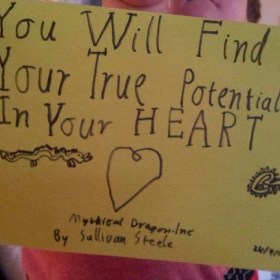 You Will Find
Your True Potential
In Your HEART
Mythical Dragon-Inc
By Sullivan Steele